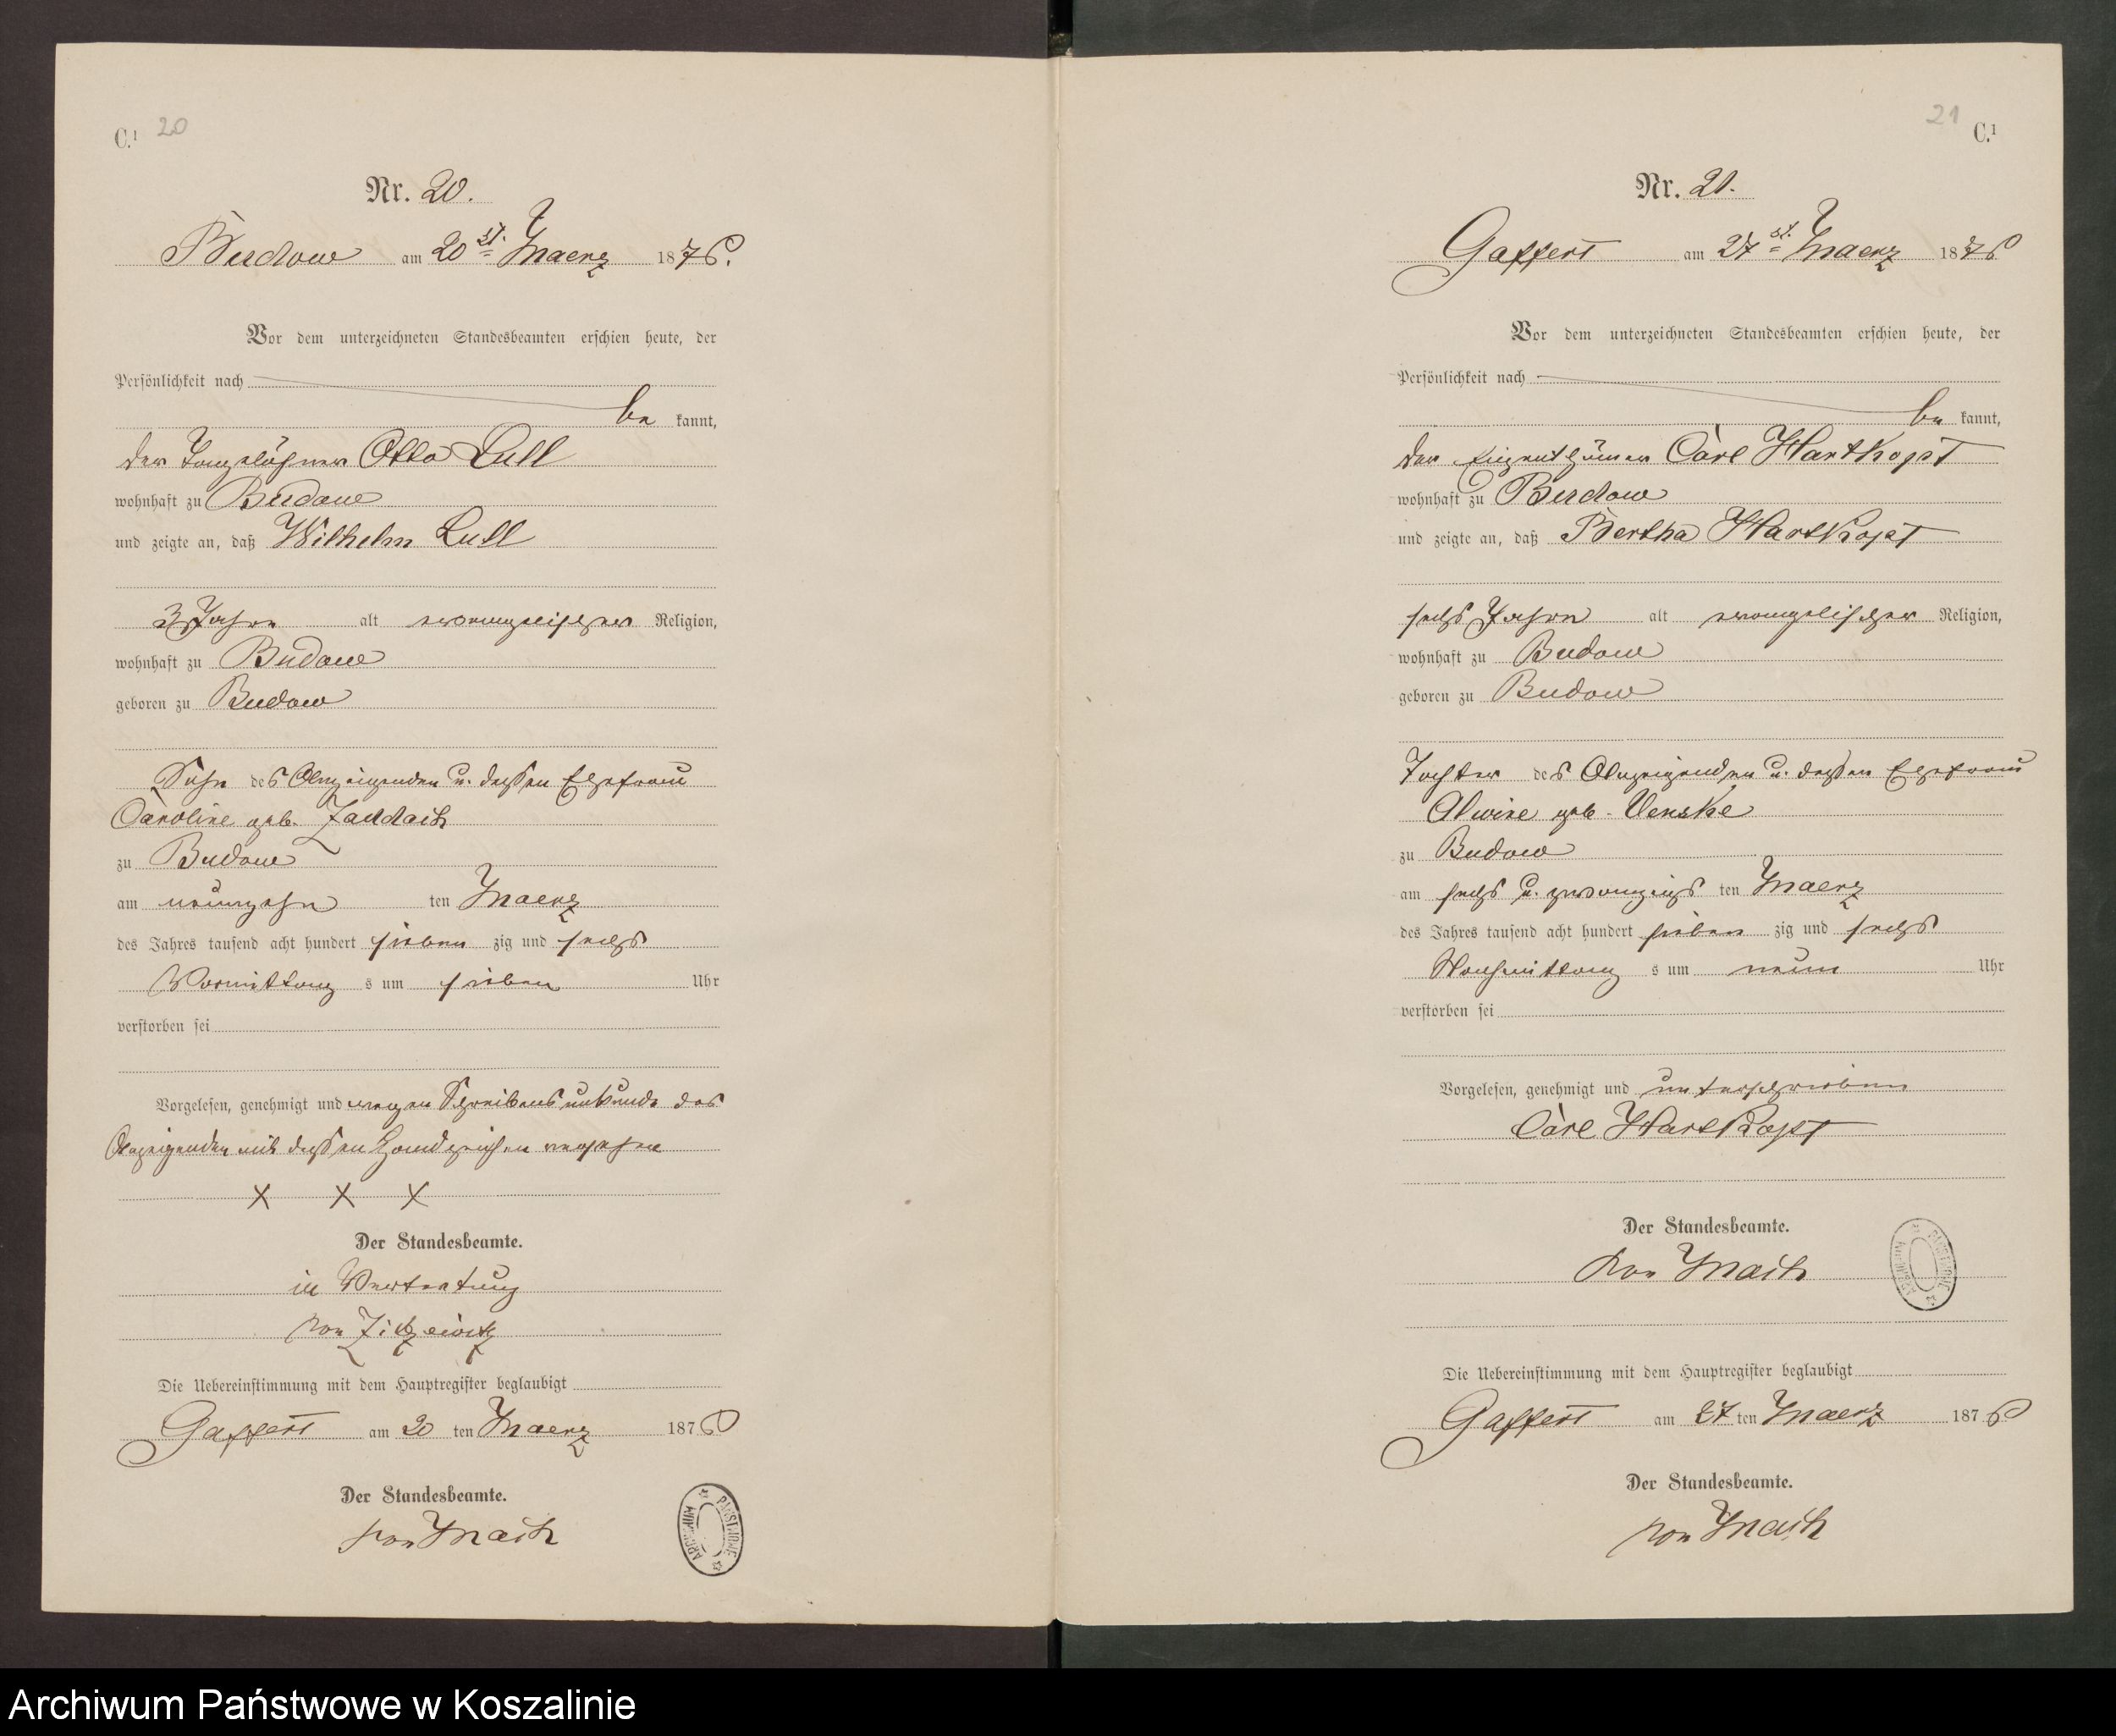 C.¹ 20
Nr. 20.
Budow am 20st. Maerz 1876.
Vor dem unterzeichneten Standesbeamten erschien heute, der
Persönlichkeit nach
be kannt,
der Tagelöhner Otto Lull
wohnhaft zu Budow
und zeigte an, daß Wilhelm Lull
3 Jahre alt evangelischer Religion,
wohnhaft zu Budow
geboren zu Budow
Sohn des Anzeigenden u. dessen Ehefrau
Caroline geb. Zaddach
zu Budow
am neunzehn ten Maerz
des Jahres tausend acht hundert sieben zig und sechs
Vormittag s um sieben Uhr
verstorben sei
Vorgelesen, genehmigt und wegen Schreibensunkunde des
Anzeigenden mit dessen Handzeichen versehen
X X X
Der Standesbeamte.
in Vertretung
von Zitzewitz
Die Uebereinstimmung mit dem Hauptregister beglaubigt
Gaffert am 20 ten Maerz 1876
Der Standesbeamte.
von Mach
ARCHIWUM PAŃSTWOWE
21 C.¹
Nr. 21.
Gaffert am 27st. Maerz 1876
Vor dem unterzeichneten Standesbeamten erschien heute, der
Persönlichkeit nach
be kannt,
der Eigenthümer Carl Hartkopf
wohnhaft zu Budow
und zeigte an, daß Bertha Hartkopf
sechs Jahre alt evangelischer Religion,
wohnhaft zu Budow
geboren zu Budow
Tochter des Anzeigenden u. dessen Ehefrau
Alwine geb. Venske
zu Budow
am sechs u. zwanzigs ten Maerz
des Jahres tausend acht hundert sieben zig und sechs
Nachmittag s um neun Uhr
verstorben sei
Vorgelesen, genehmigt und unterschrieben
Carl Hartkopf
Der Standesbeamte.
von Mach
ARCHIWUM PAŃSTWOWE
Die Uebereinstimmung mit dem Hauptregister beglaubigt
Gaffert am 27 ten Maerz 1876
Der Standesbeamte.
von Mach
Archiwum Państwowe w Koszalinie